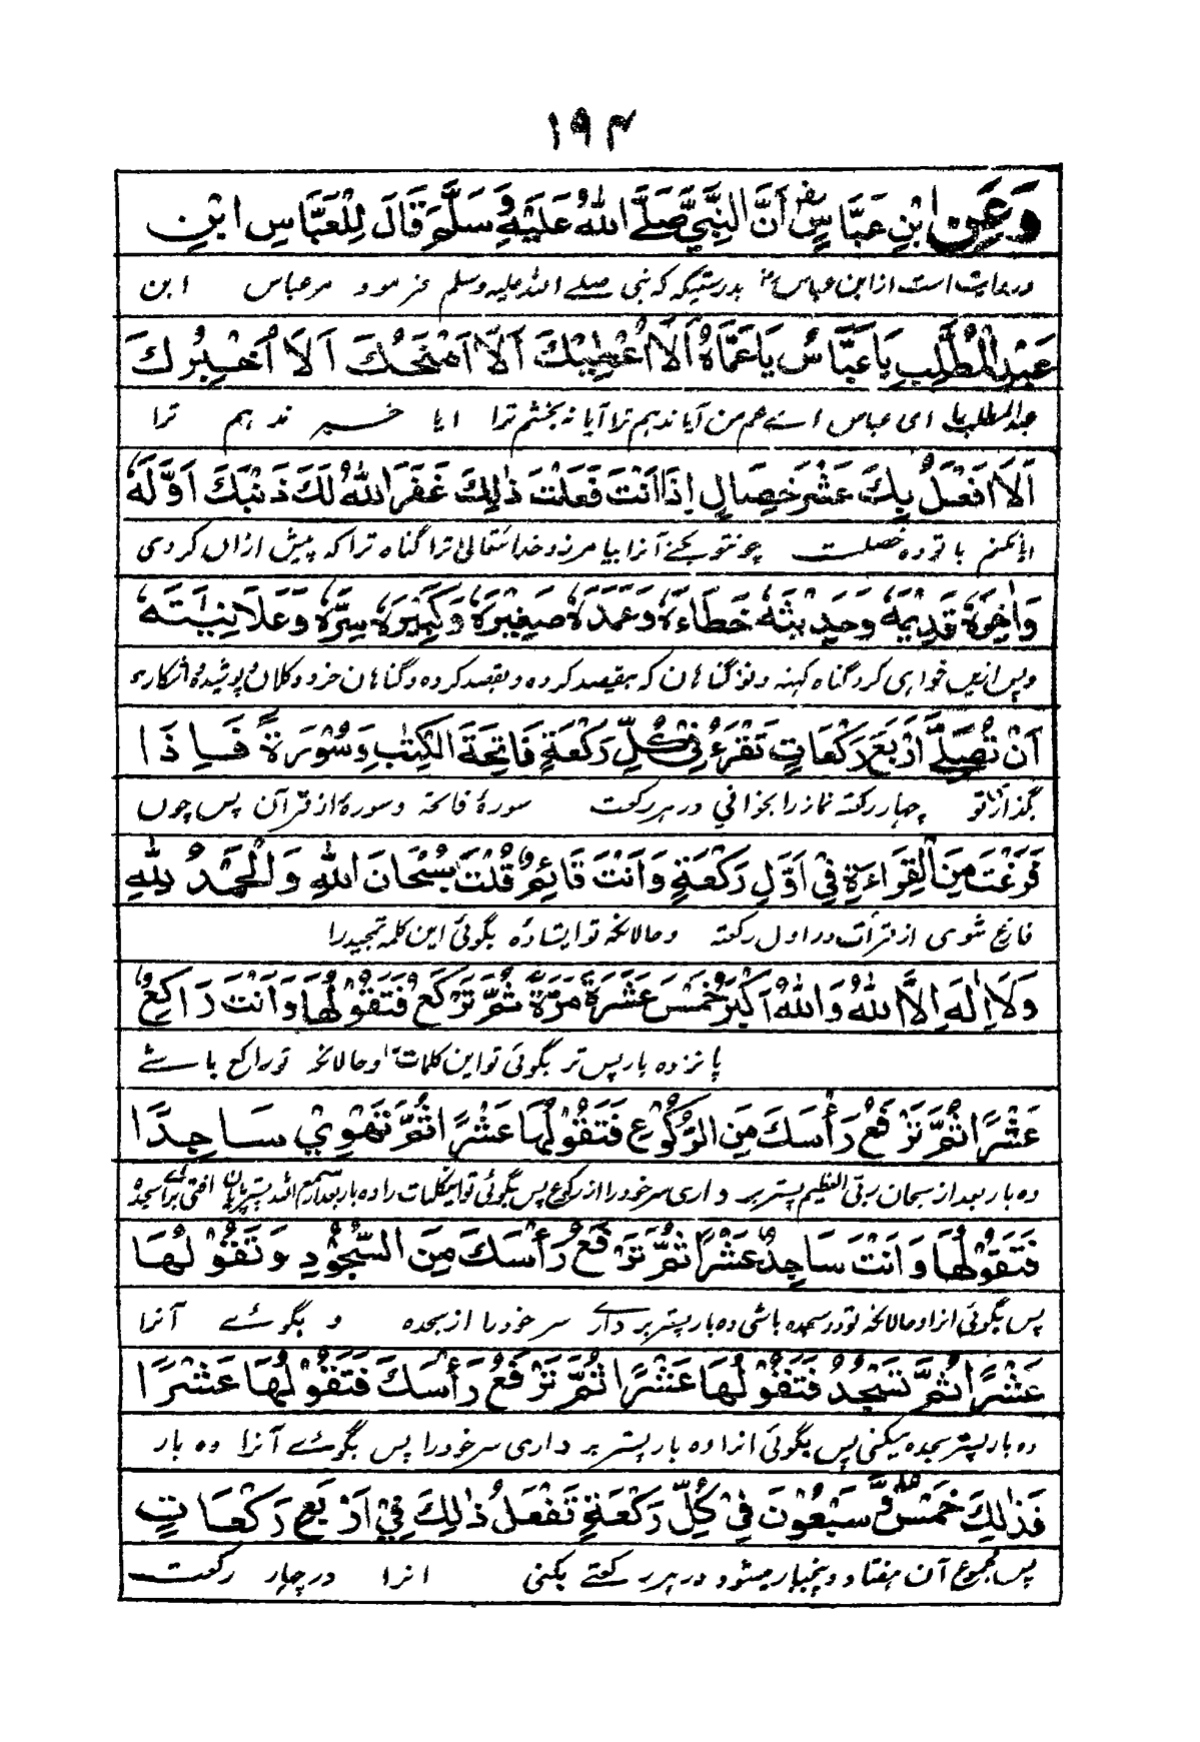 ۱۹۴
وَعَنِ ابْنِ عَبَّاسٍ اَنَّ النَّبِيَّ صَلَّے اللّٰهُ عَلَيْهِ وَسَلَّمَ قَالَ لِلْعَبَّاسِ ابْنِ
روایت است از ابن عباس بدرستیکه که نبی صلے الله علیه وسلم فرمود مر عباس ابن
عَبْدِ الْمُطَّلِبِ يَا عَبَّاسُ يَا عَمَّاهُ اَلَا اُعْطِيْكَ اَلَا اَمْنَحُكَ اَلَا اُخْبِرُكَ
عبد المطلب را ای عباس اے عم من آیا ندهم ترا آیا نه بخشم ترا ایا خبر ندهم ترا
اَلَا اَفْعَلُ بِكَ عَشْرَ خِصَالٍ اِذَا اَنْتَ فَعَلْتَ ذٰلِكَ غَفَرَ اللّٰهُ لَكَ ذَنْبَكَ اَوَّلَهٗ
ایا نکنم با تو ده خصلت چو نتو بکنے آنرا بیامرزد خدا تعالیٰ ترا گناه ترا که پیش ازاں کردی
وَاٰخِرَهٗ قَدِيْمَهٗ وَحَدِيْثَهٗ خَطَاءَهٗ وَعَمَدَهٗ صَغِيْرَهٗ وَكَبِيْرَهٗ سِرَّهٗ وَعَلَانِيَتَهٗ
وپس ازیں خواہی کرد گناه کهنه و نو گناہان که بقصد کرده و بقصد کرده و گناہان خرد و کلان پوشیده آشکاره
اَنْ تُصَلِّے اَرْبَعَ رَكْعَاتٍ تَقْرَءُ فِيْ كُلِّ رَكْعَةٍ فَاتِحَةَ الْكِتٰبِ وَسُوْرَةً فَاِذَا
بگذار تو چہار رکعة نماز را بخوانی در هر رکعت سورۂ فاتحه و سورۂ از قرآن پس چوں
فَرَغْتَ مِنَ الْقِرَاءَةِ فِيْ اَوَّلِ رَكْعَةٍ وَاَنْتَ قَائِمٌ قُلْتَ سُبْحَانَ اللّٰهِ وَالْحَمْدُ لِلّٰهِ
فارغ شوی از قرأت در اول رکعة وحالانکه تو ایستاده بگوئی این کلمه تمجید را
وَلَا اِلٰهَ اِلَّا اللّٰهُ وَاللّٰهُ اَكْبَرُ خَمْسَ عَشَرَةَ مَرَّةً ثُمَّ تَرْكَعُ فَتَقُوْلُهَا وَاَنْتَ رَاكِعٌ
پانزده بار پس تر بگوئی تو این کلمات را وحالانکه تو راکع باشے
عَشْرًا ثُمَّ تَرْفَعُ رَأْسَكَ مِنَ الرُّكُوْعِ فَتَقُوْلُهَا عَشْرًا ثُمَّ تَهْوِيْ سَاجِدًا
ده بار بعد از سبحان ربی العظیم پستر بر داری سر خود را از رکوع پس بگوئی تو اینکلمات را ده بار بعد از سمع الله پستر افتی برائے سجده
فَتَقُوْلُهَا وَاَنْتَ سَاجِدٌ عَشْرًا ثُمَّ تَرْفَعُ رَأْسَكَ مِنَ السُّجُوْدِ وَتَقُوْلُهَا
پس بگوئی انرا وحالانکه تو در سجده باشی ده بار پستر بر دارے سر خود را از سجده و بگوئے آنرا
عَشْرًا ثُمَّ تَسْجُدُ فَتَقُوْلُهَا عَشْرًا ثُمَّ تَرْفَعُ رَأْسَكَ فَتَقُوْلُهَا عَشْرًا
ده بار پستر سجده میکنی پس بگوئی انرا ده بار پستر بر داری سر خود را پس بگوئے آنرا ده بار
فَذٰلِكَ خَمْسٌ وَّسَبْعُوْنَ فِيْ كُلِّ رَكْعَةٍ تَفْعَلُ ذٰلِكَ فِيْ اَرْبَعِ رَكْعَاتٍ
پس مجموع آن هفتاد و پنجبار میشود در هر رکعتے بکنی انرا در چہار رکعت